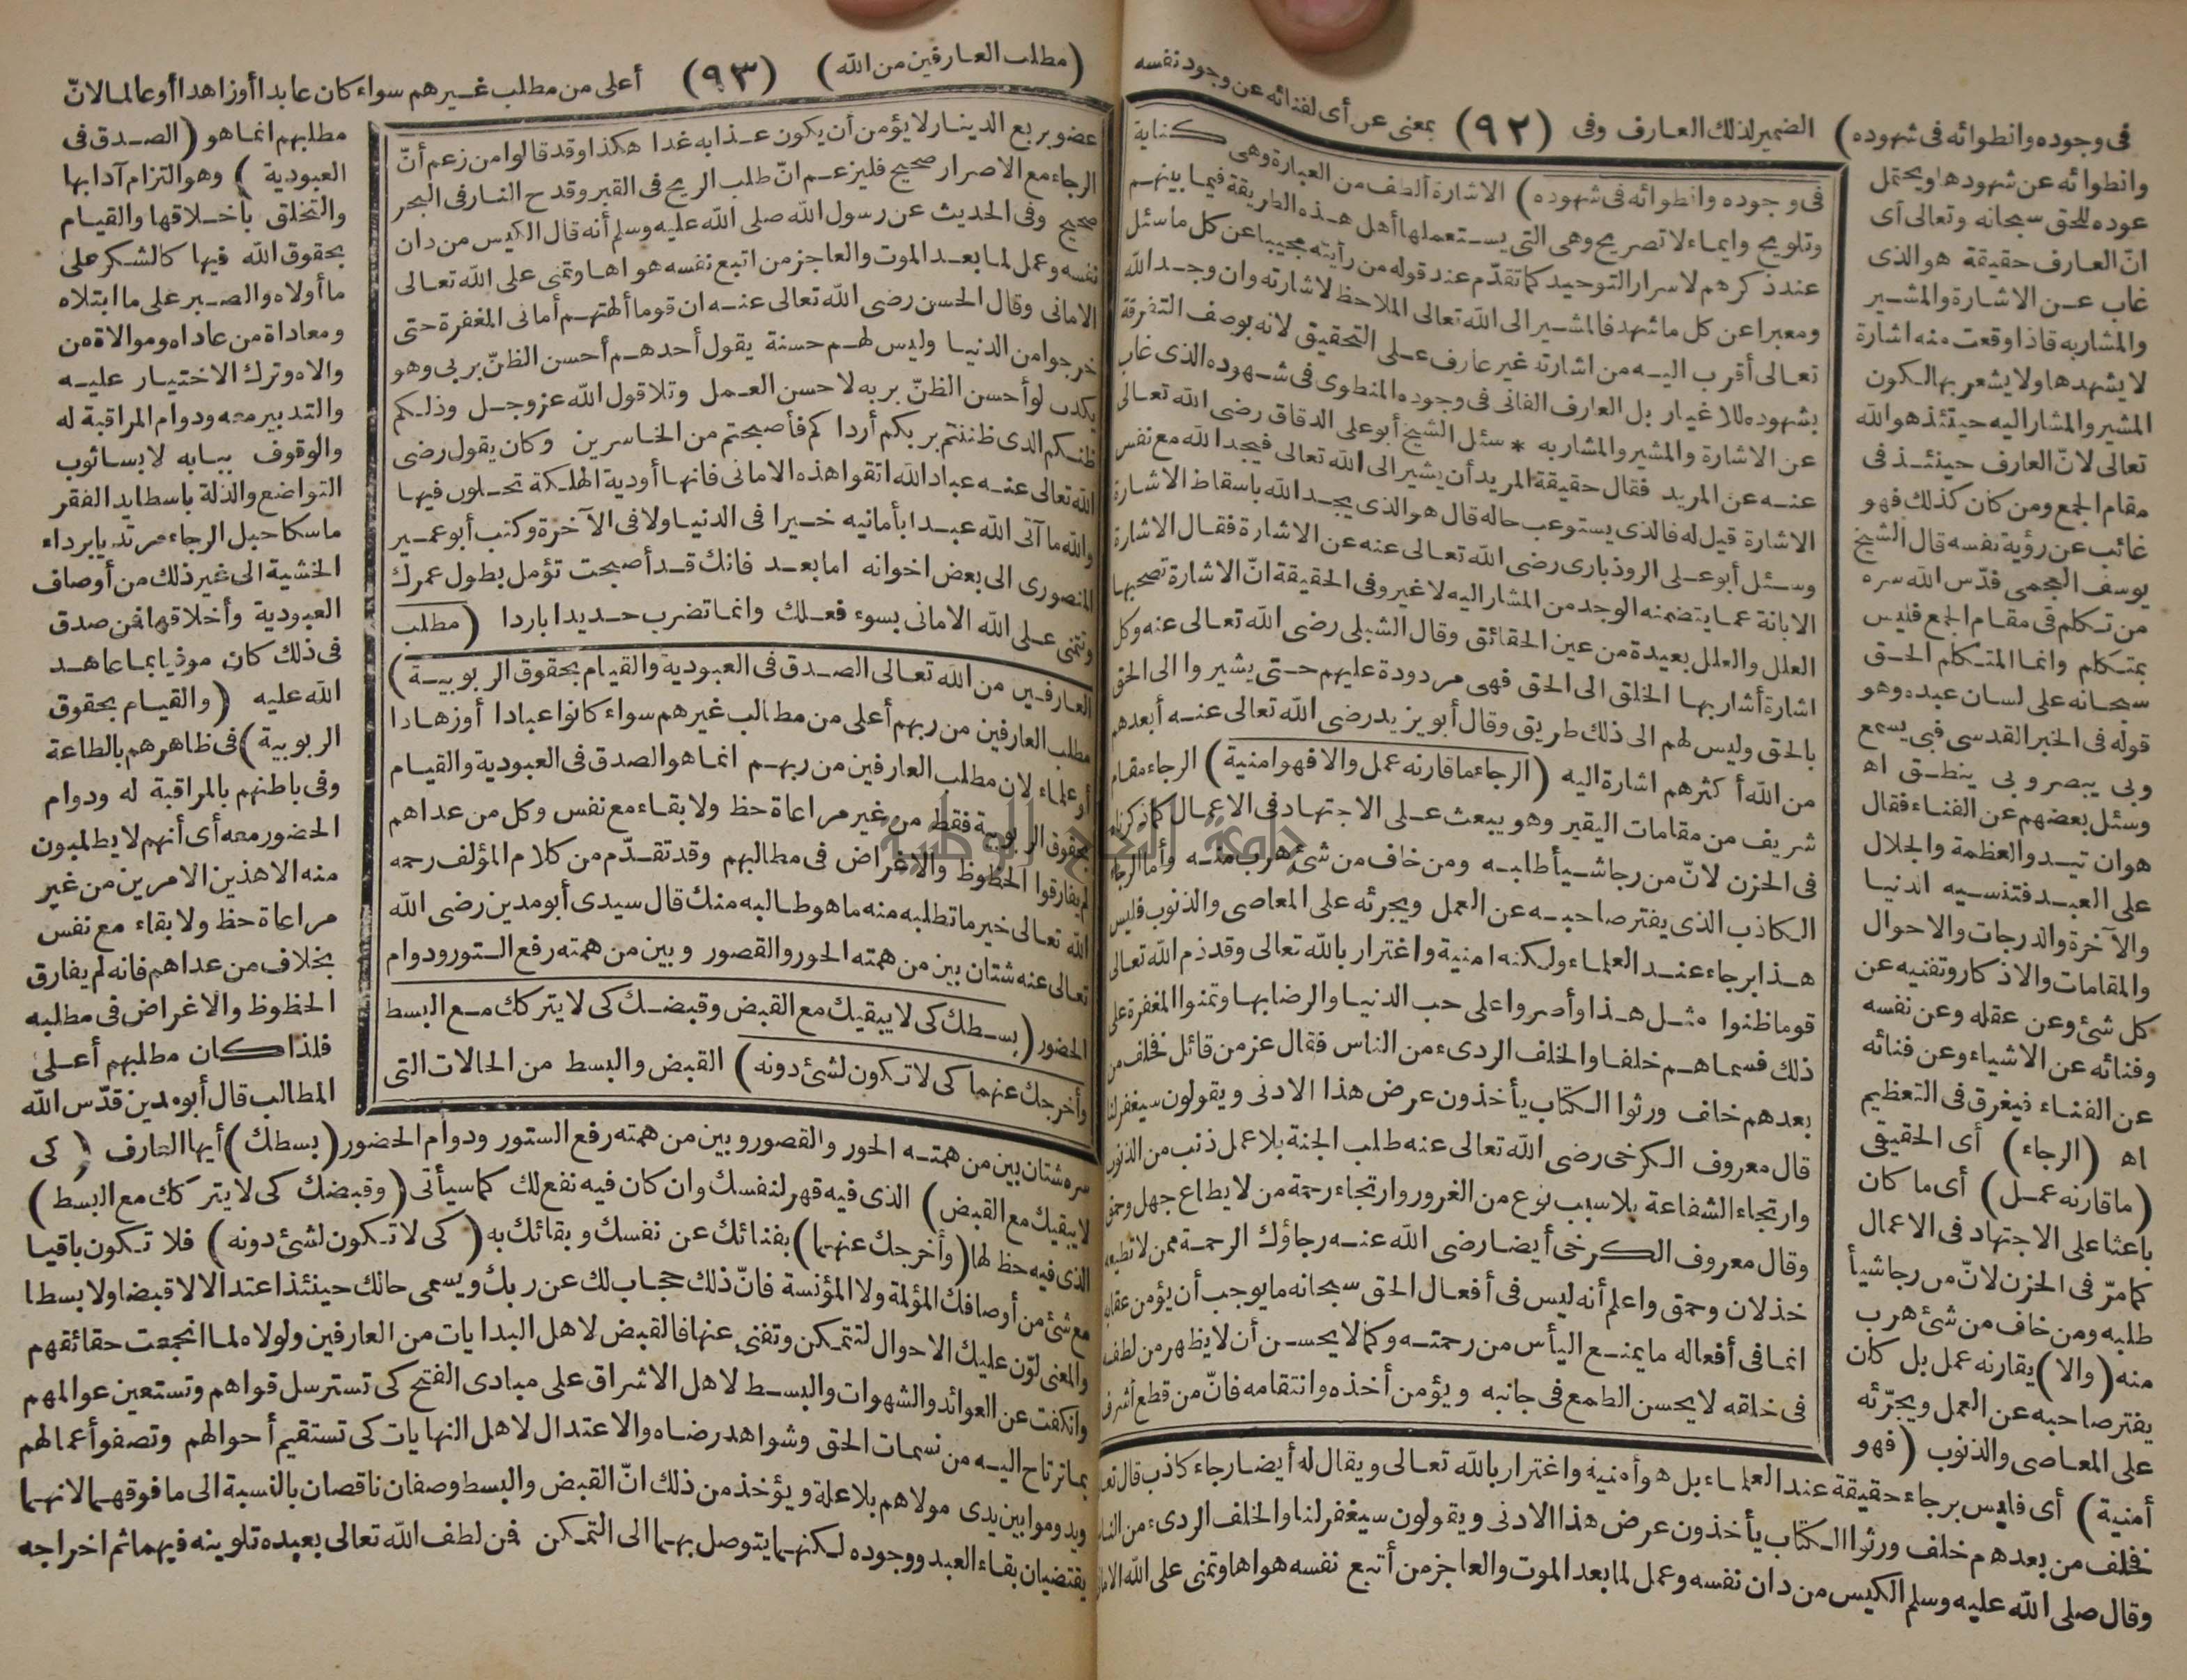 فى وجوده وانطوائه فى شهوده) الضمير لذلك العارف وفى (٩٢) بمعنى عن أى لفنائه عن وجود نفسه
وانطوائه عن شهودها ويحتمل
عوده للحق سبحانه وتعالى أى
انّ العارف حقيقة هو الذى
غاب عن الاشارة والمشير
والمشار به فاذا وقعت منه اشارة
لا يشهدها ولا يشعر بها لكون
المشير والمشار اليه حينئذ هو الله
تعالى لانّ العارف حينئذ فى
مقام الجمع ومن كان كذلك فهو
غائب عن رؤية نفسه قال الشيخ
يوسف العجمى قدّس الله سره
من تكلم فى مقام الجمع فليس
بمتكلم وانما المتكلم الحق
سبحانه على لسان عبده وهو
قوله فى الخبر القدسى فبى يسمع
وبى يبصر وبى ينطق اه
وسئل بعضهم عن الفناء فقال
هو ان تبدو العظمة والجلال
على العبد فتنسيه الدنيا
والآخرة والدرجات والاحوال
والمقامات والاذكار وتفنيه عن
كل شئ وعن عقله وعن نفسه
وفنائه عن الاشياء وعن فنائه
عن الفناء فيغرق فى التعظيم
اه (الرجاء) أى الحقيقى
(ما قارنه عمل) أى ما كان
باعثا على الاجتهاد فى الاعمال
كما مرّ فى الحزن لانّ من رجا شيأ
طلبه ومن خاف من شئ هرب
منه (والا) يقارنه عمل بل كان
يفتر صاحبه عن العمل ويجرّئه
على المعاصى والذنوب (فهو
فى وجوده وانطوائه فى شهوده) الاشارة ألطف من العبارة وهى كناية
وتلويح وايماء لا تصريح وهى التى يستعملها أهل هذه الطريقة فيما بينهم
عند ذكرهم لاسرار التوحيد كما تقدّم عند قوله من رأيته مجيبا عن كل ما سئل
ومعبرا عن كل ما شهد فالمشير الى الله تعالى الملاحظ لاشارته وان وجد الله
تعالى أقرب اليه من اشارته غير عارف على التحقيق لانه بوصف التفرقة
بشهوده للاغيار بل العارف الفانى فى وجوده المنطوى فى شهوده الذى غاب
عن الاشارة والمشير والمشار به * سئل الشيخ أبو على الدقاق رضى الله تعالى
عنه عن المريد فقال حقيقة المريد أن يشير الى الله تعالى فيجد الله مع نفس
الاشارة قيل له فالذى يستوعب حاله قال هو الذى يجد الله باسقاط الاشارة
وسئل أبو على الروذبارى رضى الله تعالى عنه عن الاشارة فقال الاشارة
الابانة عما يتضمنه الوجد من المشار اليه لا غير وفى الحقيقة انّ الاشارة تصحبها
العلل والعلل بعيدة من عين الحقائق وقال الشبلى رضى الله تعالى عنه وكل
اشارة أشار بها الخلق الى الحق فهى مردودة عليهم حتى يشيروا الى الحق
بالحق وليس لهم الى ذلك طريق وقال أبو يزيد رضى الله تعالى عنه أبعدهم
من الله أكثرهم اشارة اليه (الرجاء ما قارنه عمل والا فهو امنية) الرجاء مقام
شريف من مقامات اليقين وهو يبعث على الاجتهاد فى الاعمال كما ذكرناه
فى الحزن لانّ من رجا شيأ طلبه ومن خاف من شئ هرب منه وأما الرجاء
الكاذب الذى يفتر صاحبه عن العمل ويجرئه على المعاصى والذنوب فليس
هذا برجاء عند العلماء ولكنه امنية واغترار بالله تعالى وقد ذم الله تعالى
قوما ظنوا مثل هذا وأصروا على حب الدنيا والرضا بها وتمنوا المغفرة على
ذلك فسماهم خلفا والخلف الردىء من الناس فقال عز من قائل فخلف من
بعدهم خلف ورثوا الكتاب يأخذون عرض هذا الادنى ويقولون سيغفر لنا
قال معروف الكرخى رضى الله تعالى عنه طلب الجنة بلا عمل ذنب من الذنوب
وارتجاء الشفاعة بلا سبب نوع من الغرور وارتجاء رحمة من لا يطاع جهل وحمق
وقال معروف الكرخى أيضا رضى الله عنه رجاؤك الرحمة ممن لا تطيعه
خذلان وحمق واعلم أنه ليس فى أفعال الحق سبحانه ما يوجب أن يؤمن عقابه
انما فى أفعاله ما يمنع اليأس من رحمته وكما لا يحسن أن لا يظهر من لطف
فى خلقه لا يحسن الطمع فى جانبه ويؤمن أخذه وانتقامه فانّ من قطع أشرف
أمنية) أى فليس برجاء حقيقة عند العلماء بل هو أمنية واغترار بالله تعالى ويقال له أيضا رجاء كاذب قال تعالى
فخلف من بعدهم خلف ورثوا الكتاب يأخذون عرض هذا الادنى ويقولون سيغفر لنا والخلف الردىء من الناس
وقال صلى الله عليه وسلم الكيس من دان نفسه وعمل لما بعد الموت والعاجز من أتبع نفسه هواها وتمنى على الله الامانى
(مطلب العارفين من الله) (٩٣) أعلى من مطلب غيرهم سواء كان عابدا أو زاهدا أو عالما لانّ
عضو بربع الدينار لا يؤمن أن يكون عذابه غدا هكذا وقد قالوا من زعم أنّ
الرجاء مع الاصرار صحيح فليزعم انّ طلب الريح فى القبر وقدح النار فى البحر
صحيح وفى الحديث عن رسول الله صلى الله عليه وسلم أنه قال الكيس من دان
نفسه وعمل لما بعد الموت والعاجز من اتبع نفسه هواها وتمنى على الله تعالى
الامانى وقال الحسن رضى الله تعالى عنه ان قوما ألهتهم أمانى المغفرة حتى
خرجوا من الدنيا وليس لهم حسنة يقول أحدهم أحسن الظنّ بربى وهو
يكذب لو أحسن الظنّ بربه لاحسن العمل وتلا قول الله عز وجل وذلكم
ظنكم الذى ظننتم بربكم أرداكم فأصبحتم من الخاسرين وكان يقول رضى
الله تعالى عنه عباد الله اتقوا هذه الامانى فانها أودية الهلكة تحلون فيها
والله ما آتى الله عبدا بأمانيه خيرا فى الدنيا ولا فى الآخرة وكتب أبو عمير
المنصورى الى بعض اخوانه اما بعد فانك قد أصبحت تؤمل بطول عمرك
وتتمنى على الله الامانى بسوء فعلك وانما تضرب حديدا باردا (مطلب
العارفين من الله تعالى الصدق فى العبودية والقيام بحقوق الربوبية)
مطلب العارفين من ربهم أعلى من مطالب غيرهم سواء كانوا عبادا أو زهادا
أو علماء لان مطلب العارفين من ربهم انما هو الصدق فى العبودية والقيام
بحقوق الربوبية فقط من غير مراعاة حظ ولا بقاء مع نفس وكل من عداهم
لم يفارقوا الحظوظ والاغراض فى مطالبهم وقد تقدّم من كلام المؤلف رحمه
الله تعالى خير ما تطلبه منه ما هو طالبه منك قال سيدى أبو مدين رضى الله
تعالى عنه شتان بين من همته الحور والقصور وبين من همته رفع الستور ودوام
الحضور (بسطك كى لا يبقيك مع القبض وقبضك كى لا يتركك مع البسط
وأخرجك عنهما كى لا تكون لشئ دونه) القبض والبسط من الحالات التى
مطلبهم انما هو (الصدق فى
العبودية) وهو التزام آدابها
والتخلق بأخلاقها والقيام
بحقوق الله فيها كالشكر على
ما أولاه والصبر على ما ابتلاه
ومعاداة من عاداه وموالاة من
والاه وترك الاختيار عليه
والتدبير معه ودوام المراقبة له
والوقوف ببابه لابسا ثوب
التواضع والذلة باسطا يد الفقر
ماسكا حبل الرجاء مرتديا برداء
الخشية الى غير ذلك من أوصاف
العبودية وأخلاقها فمن صدق
فى ذلك كان موفيا بما عاهد
الله عليه (والقيام بحقوق
الربوبية) فى ظاهرهم بالطاعة
وفى باطنهم بالمراقبة له ودوام
الحضور معه أى أنهم لا يطلبون
منه الا هذين الامرين من غير
مراعاة حظ ولا بقاء مع نفس
بخلاف من عداهم فانه لم يفارق
الحظوظ والاغراض فى مطلبه
فلذا كان مطلبهم أعلى
المطالب قال أبو مدين قدّس الله
سره شتان بين من همته الحور والقصور وبين من همته رفع الستور ودوام الحضور (بسطك) أيها العارف (كى
لا يبقيك مع القبض) الذى فيه قهر لنفسك وان كان فيه نفع لك كما سيأتى (وقبضك كى لا يتركك مع البسط)
الذى فيه حظ لها (وأخرجك عنهما) بفنائك عن نفسك وبقائك به (كى لا تكون لشئ دونه) فلا تكون باقيا
مع شئ من أوصافك المؤلمة ولا المؤنسة فانّ ذلك حجاب لك عن ربك ويسمى حالك حينئذ اعتدالا لا قبضا ولا بسطا
والمعنى لوّن عليك الاحوال لتتمكن وتفنى عنها فالقبض لاهل البدايات من العارفين ولولاه لما انجمعت حقائقهم
وانكفت عن العوائد والشهوات والبسط لاهل الاشراق على مبادى الفتح كى تسترسل قواهم وتستعين عوالمهم
بما ترتاح اليه من نسمات الحق وشواهد رضاه والاعتدال لاهل النهايات كى تستقيم أحوالهم وتصفو أعمالهم
ويدوموا بين يدى مولاهم بلا علة ويؤخذ من ذلك انّ القبض والبسط وصفان ناقصان بالنسبة الى ما فوقهما لانهما
يقتضيان بقاء العبد ووجوده لكنهما يتوصل بهما الى التمكن فمن لطف الله تعالى بعبده تلوينه فيهما ثم اخراجه
جامعة النجاح الوطنية